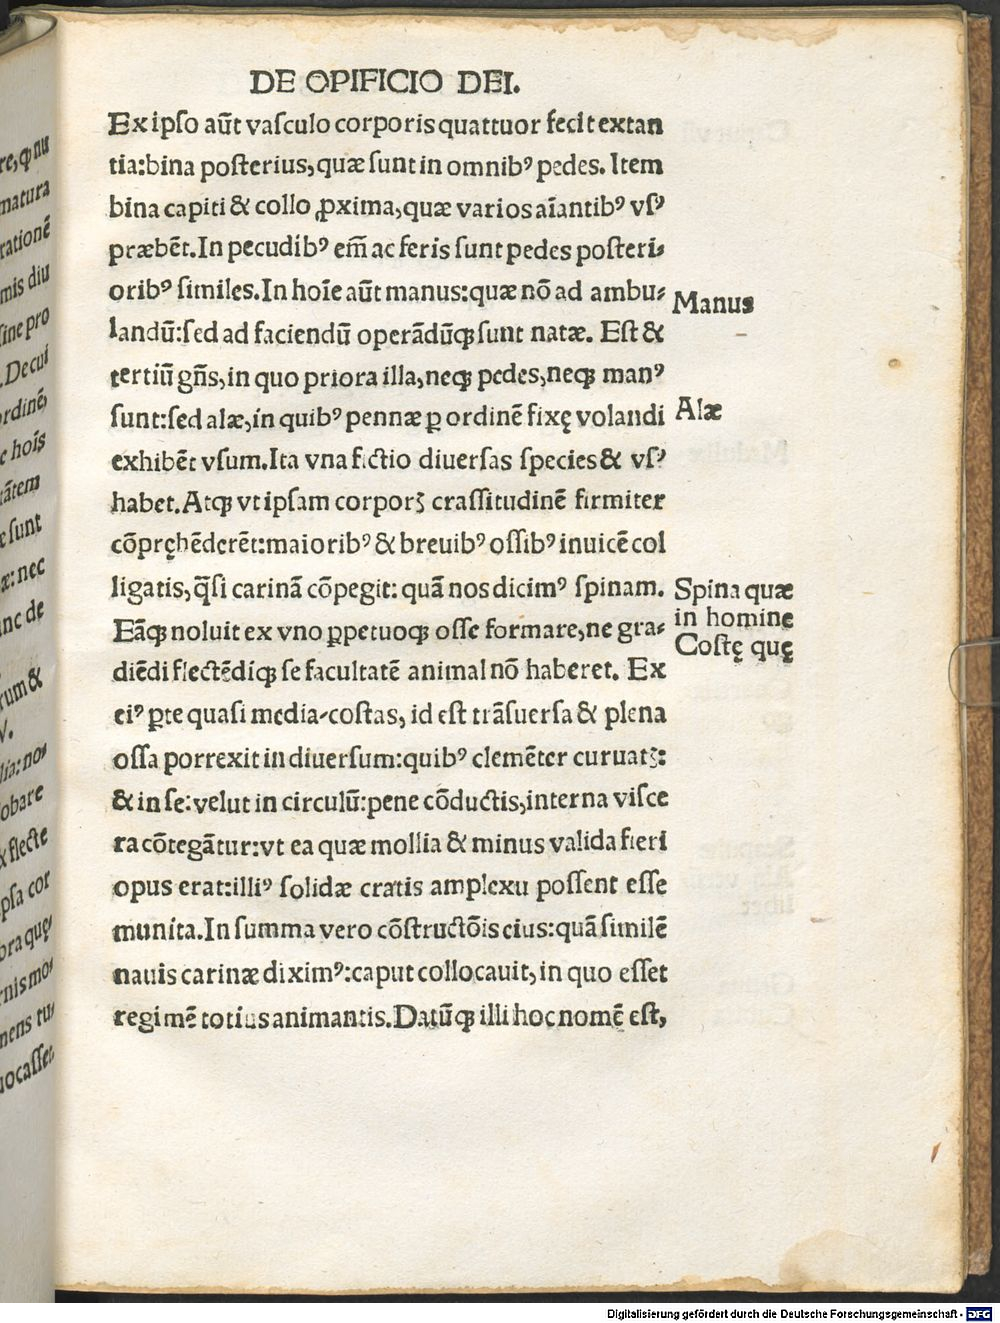 DE OPIFICIO DEI.
Ex ipso aūt vaſculo corporis quattuor fecit extan
tia:bina poſterius,quæ ſunt in omnibꝰ pedes. Item
bina capiti & collo ꝓxima,quæ varios aīantibꝰ vſꝰ
præbēt.In pecudibꝰ em̄ ac feris ſunt pedes poſteri⸗
oribꝰ ſimiles.In hoīe aūt manus:quæ nō ad ambu⸗
Manus
landū:ſed ad faciendū operādūqꝫ ſunt natæ. Eſt &
tertiū gn̄s,in quo priora illa,neqꝫ pedes,neqꝫ manꝰ
ſunt:ſed alæ,in quibꝰ pennæ ꝑ ordinē fixę volandi
Alæ
exhibēt vſum.Ita vna fictio diuerſas ſpecies & vſꝰ
habet.Atqꝫ vt ipſam corporꝫ craſſitudinē firmiter
cōpręhēderēt:maioribꝰ & breuibꝰ oſſibꝰ inuicē col
ligatis,q̄ſi carinā cōpegit: quā nos dicimꝰ ſpinam.
Spina quæ
in homine
Eāqꝫ noluit ex vno ꝑpetuoqꝫ oſſe formare,ne gra⸗
Coſtę quę
diēdi flectēdiqꝫ ſe facultatē animal nō haberet. Ex
eiꝰ ꝑte quaſi media⸗coſtas, id eſt trāſuerſa & plena
oſſa porrexit in diuerſum:quibꝰ clemēter curuatꝫ:
& in ſe:velut in circulū:pene cōductis,interna viſce
ra cōtegātur:vt ea quæ mollia & minus valida fieri
opus erat:illiꝰ ſolidæ cratis amplexu poſſent eſſe
munita.In ſumma vero cōſtructōis eius:quā ſimilē
nauis carinæ diximꝰ:caput collocauit,in quo eſſet
regimē totius animantis.Datūqꝫ illi hoc nomē eſt,
re,qꝫ nu
natura
rationē
mis diu
ſine pro
.Decui
ordinē,
c hoīs
tātem
ſunt
æ: nec
unc de
rum &
V.
lia: no⸗
obare
flecte
pſa cor
bra quę
rnis mo⸗
mens tu⸗
uocaſſet
Digitalisierung gefördert durch die Deutsche Forschungsgemeinschaft - DFG